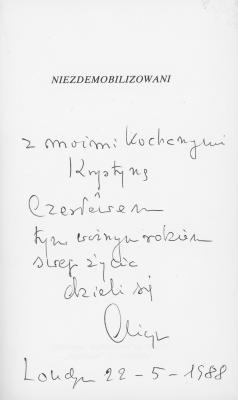 NIEZDEMOBILIZOWANI
z moimi Kochanymi
Krystyną
Czesławem
tym ważnym rokiem
swego życia
dzieli się
Londyn 22 - 5 - 1988